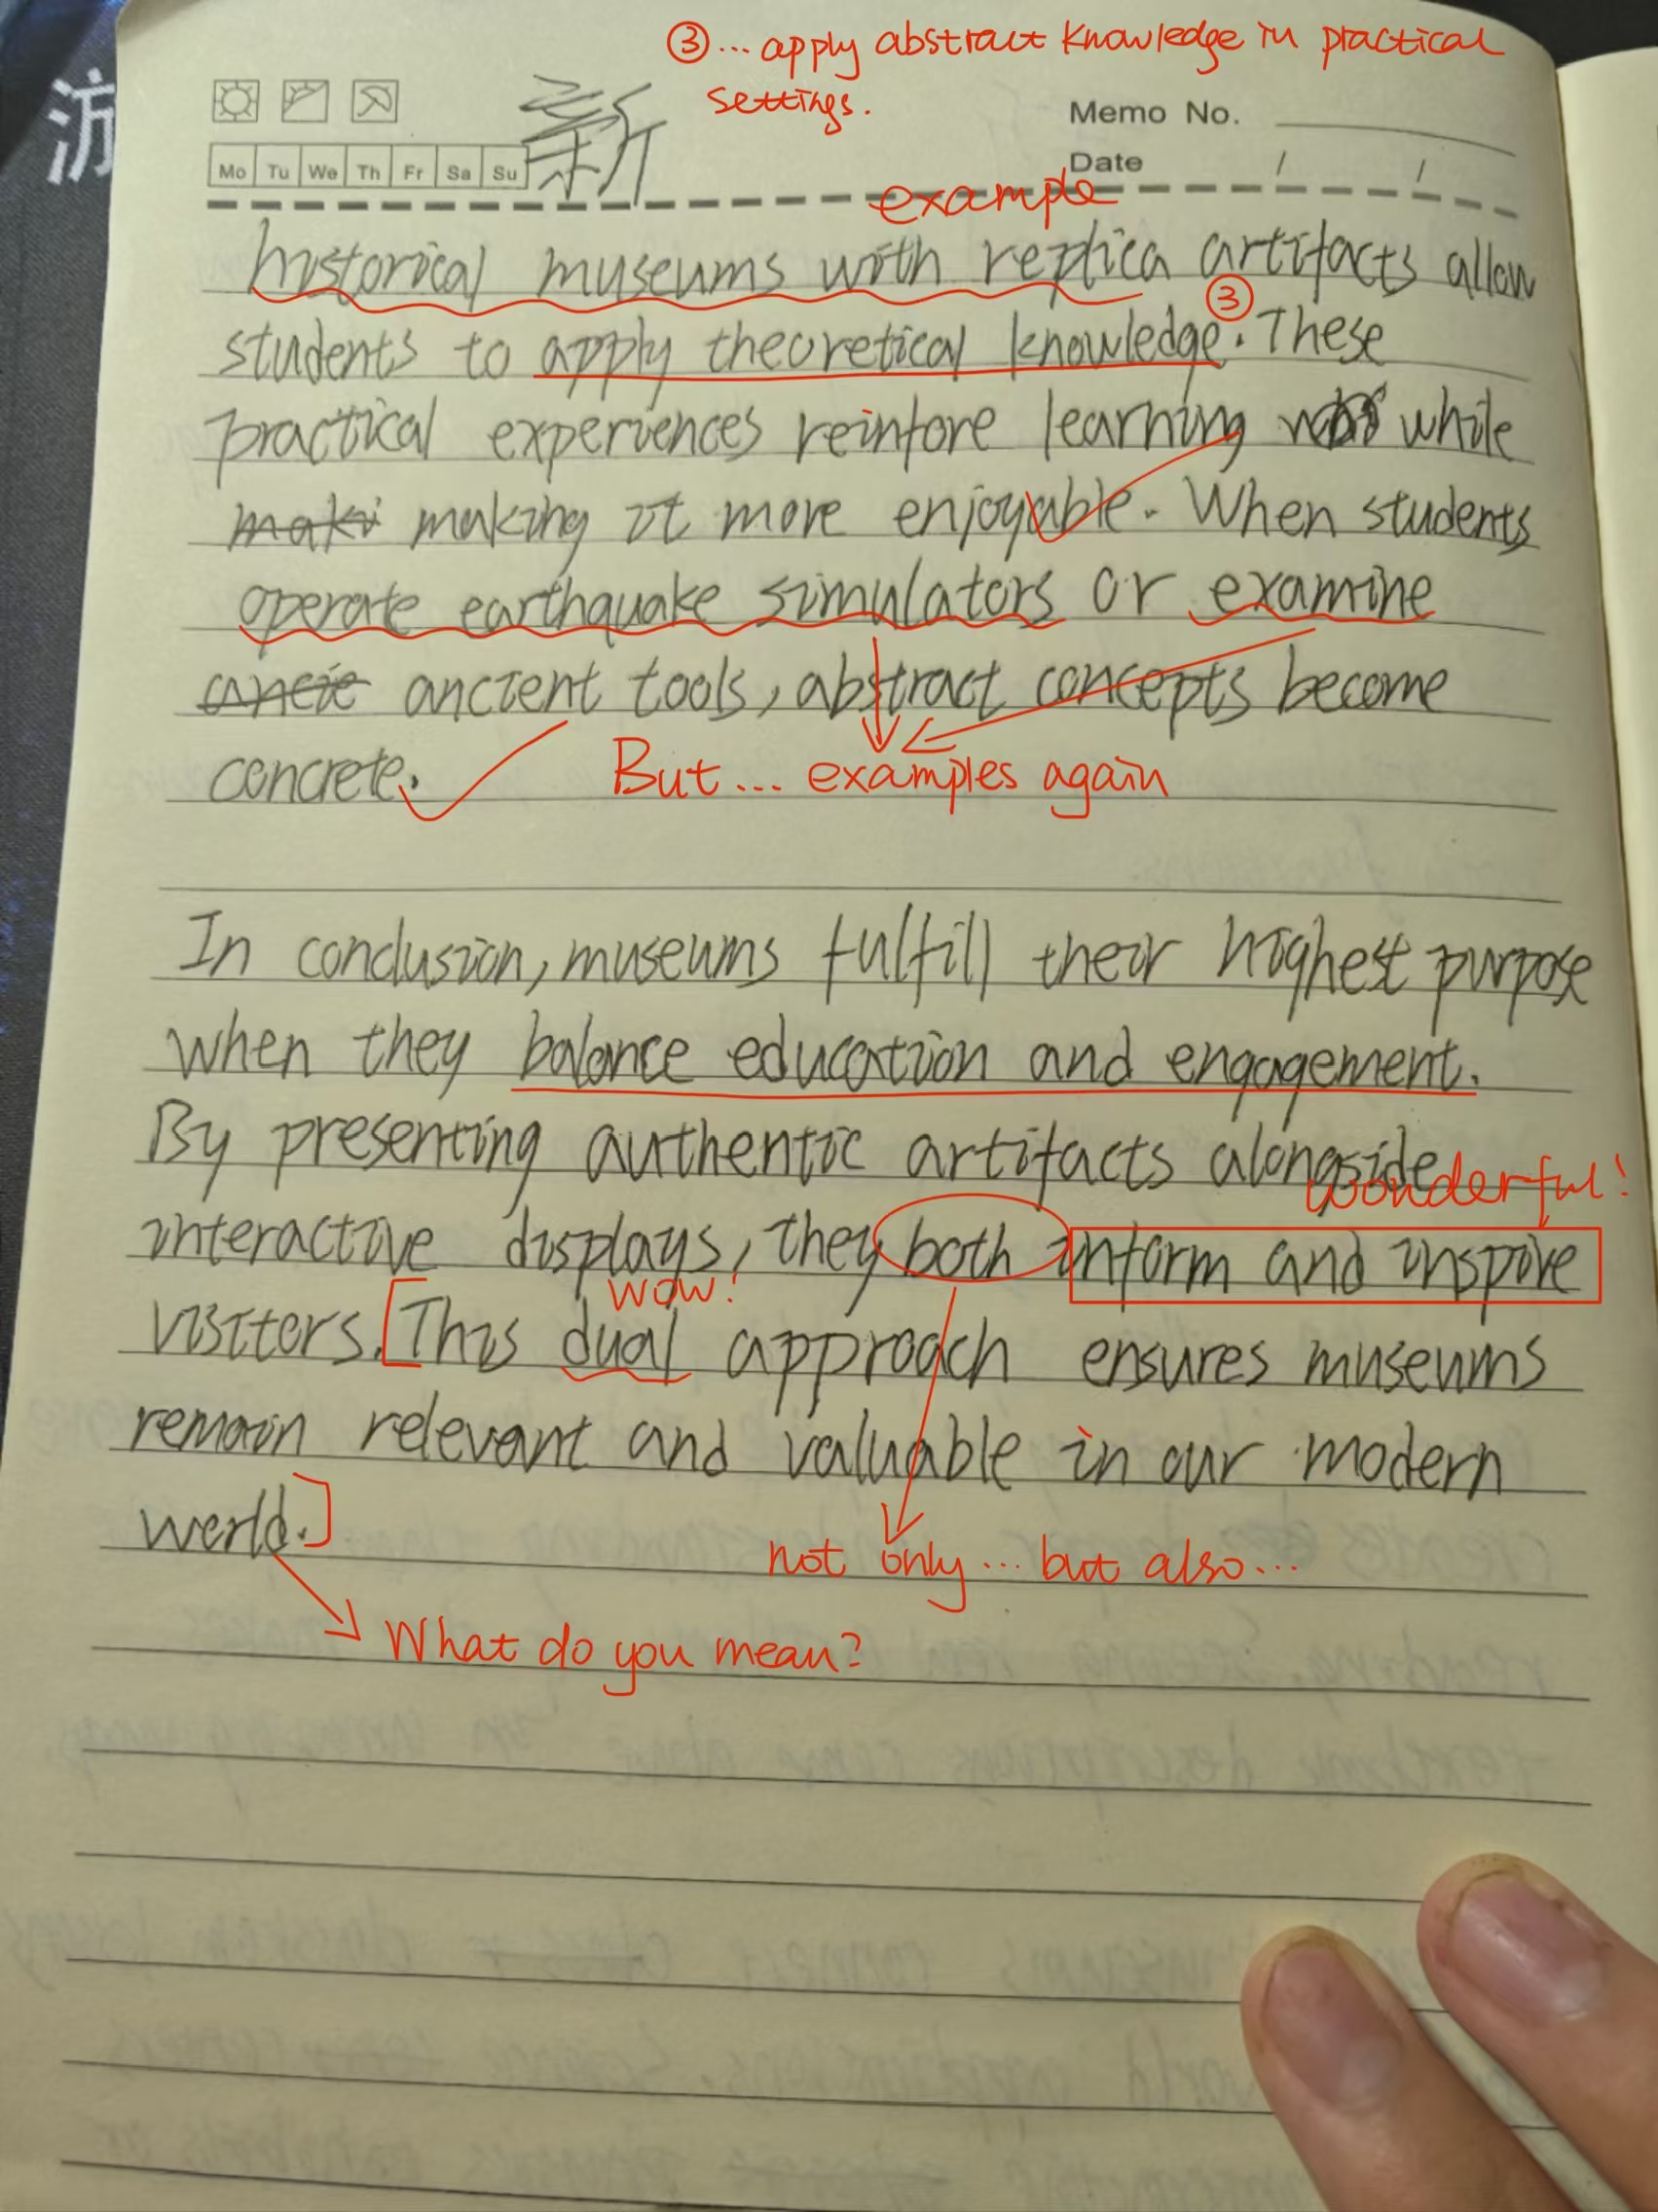 ③... apply abstract knowledge in practical
settings.
游
新
Memo No.
Mo Tu We Th Fr Sa Su
Date / /
example
historical museums with replica artifacts allow
③
students to apply theoretical knowledge. These
practical experiences reinfore learning while
maki making it more enjoyable. When students
operate earthquake simulators or examine
ancie ancient tools, abstract concepts become
concrete.
But... examples again
In conclusion, museums fulfill their highest purpose
when they balance education and engagement.
By presenting authentic artifacts alongside
wonderful!
interactive displays, they both inform and inspire
wow!
visitors. [This dual approach ensures museums
remain relevant and valuable in our modern
world.]
not only... but also...
What do you mean?